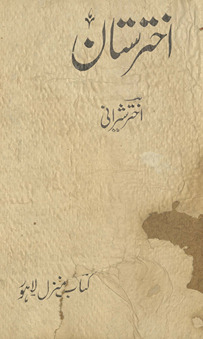 اخترستان
اختر شیرانی
کتاب منزل لاہور